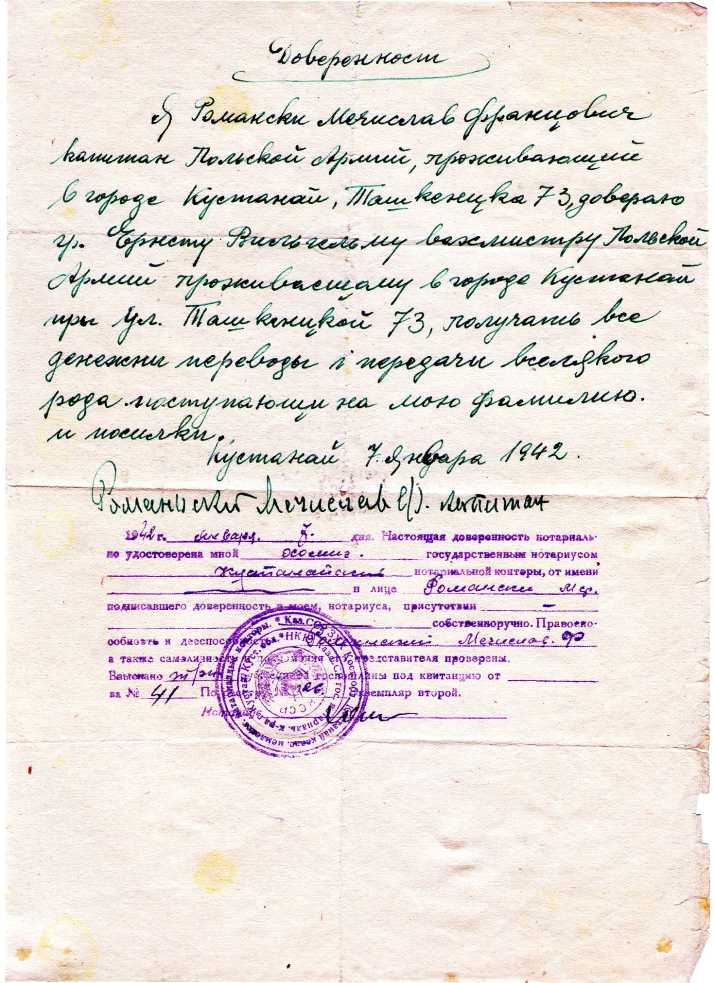 Доверенност
Я Романски Мечислав Францович
капитан Польской Армий, проживающий
в городе Кустанай, Ташкеницка 73, доверяю
гр. Ернсту Вильгельму вахмистру Польской
Армий проживасщому в городе Кустанай
пры Ул. Ташкеницкой 73, получать все
денежни переводы і передачи вселякого
рода поступающи на мою фамилию.
и посилки.
Кустанай 7. января 1942.
Мечислав капитан
1942 г. января 7. дня. Настоящая доверенность нотариаль-
но удостоверена мной государственным нотариусом
Кустанайский нотариальной конторы, от имени
в лице Романски Меч.
подписавшего доверенность в моем, нотариуса, присутствии –
собственноручно. Правоспо-
собность и дееспособность Мечислав. Ф
а также самоличность представителя проверены.
Взыскано госпошлины под квитанцию от
за № 41 экземпляр второй.